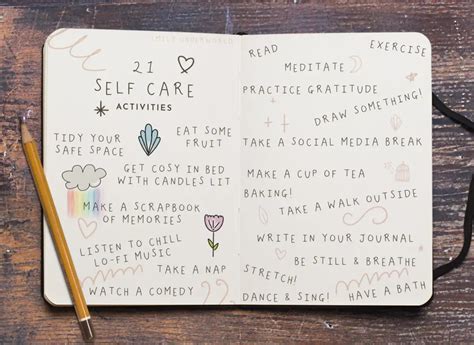 21
SELF CARE
ACTIVITIES
TIDY YOUR
SAFE SPACE
EAT SOME
FRUIT
GET COSY IN BED
WITH CANDLES LIT
MAKE A SCRAPBOOK
OF MEMORIES
LISTEN TO CHILL
LO-FI MUSIC
TAKE A NAP
WATCH A COMEDY
READ
EXERCISE
MEDITATE
PRACTICE GRATITUDE
DRAW SOMETHING!
TAKE A SOCIAL MEDIA BREAK
MAKE A CUP OF TEA
BAKING!
TAKE A WALK OUTSIDE
WRITE IN YOUR JOURNAL
BE STILL & BREATHE
STRETCH!
DANCE & SING!
HAVE A BATH